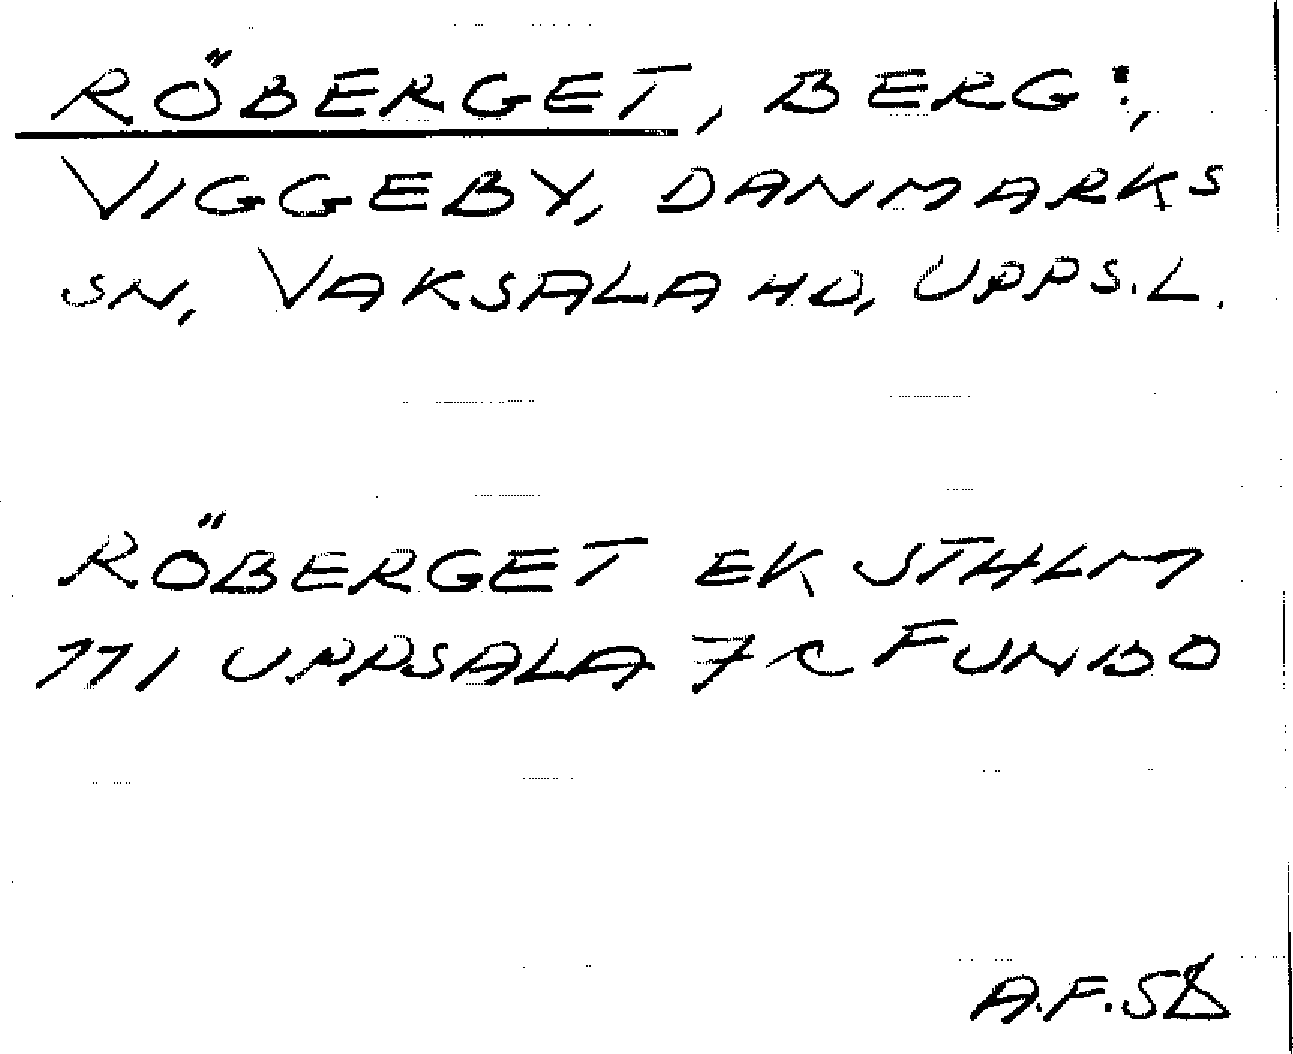 RÖBERGET, BERG:,
VIGGEBY, DANMARKS
SN, VAKSALA HD, UPPS.L.
RÖBERGET EK STHLM
11I UPPSALA 7C FUNBO
A.F.58